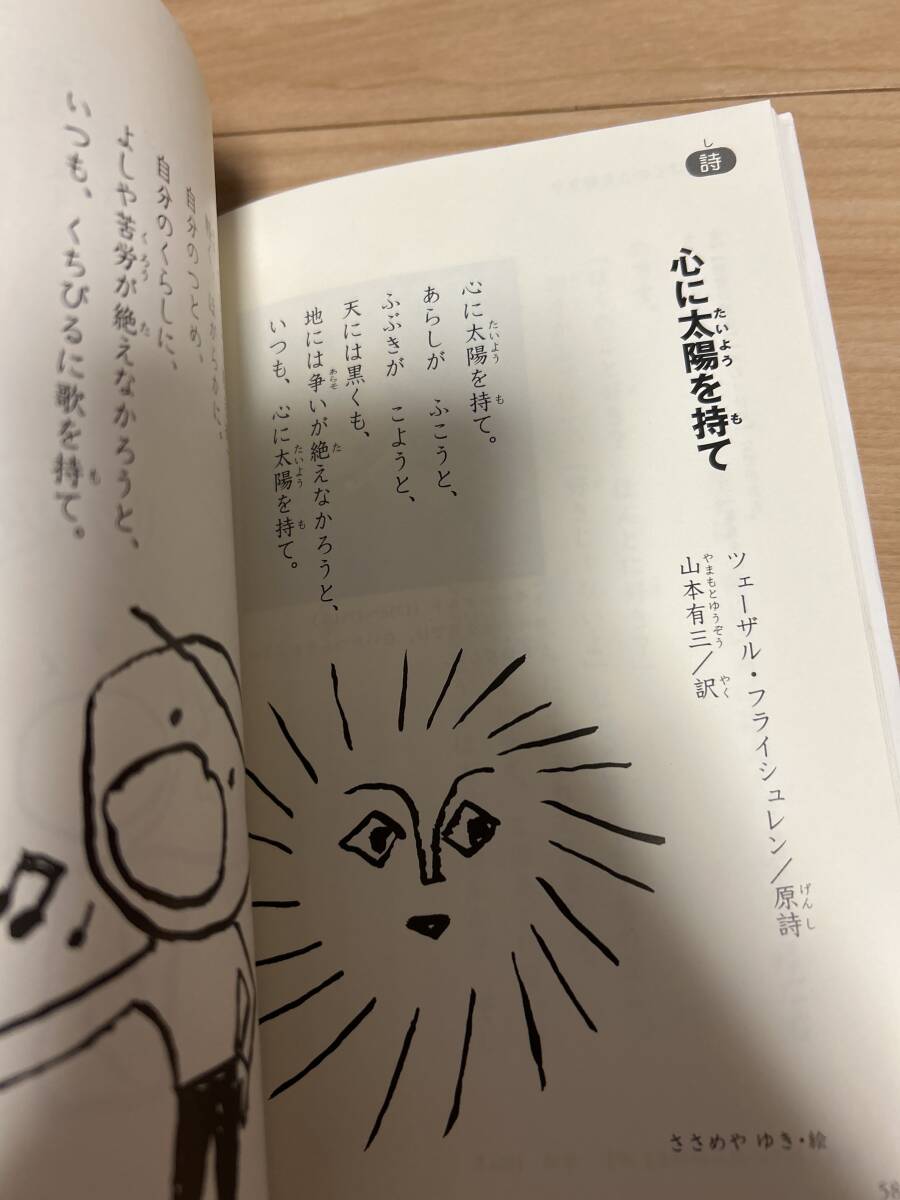 詩
心に太陽を持て
ツェーザル・フライシュレン/原詩
山本有三/訳
心に太陽を持て。
あらしが ふこうと、
ふぶきが こようと、
天には黒くも、
地には争いが絶えなかろうと、
いつも、心に太陽を持て。
ささめや ゆき・絵
58
ほがらかに。
自分のつとめ、
自分のくらしに、
よしや苦労が絶えなかろうと、
いつも、くちびるに歌を持て。